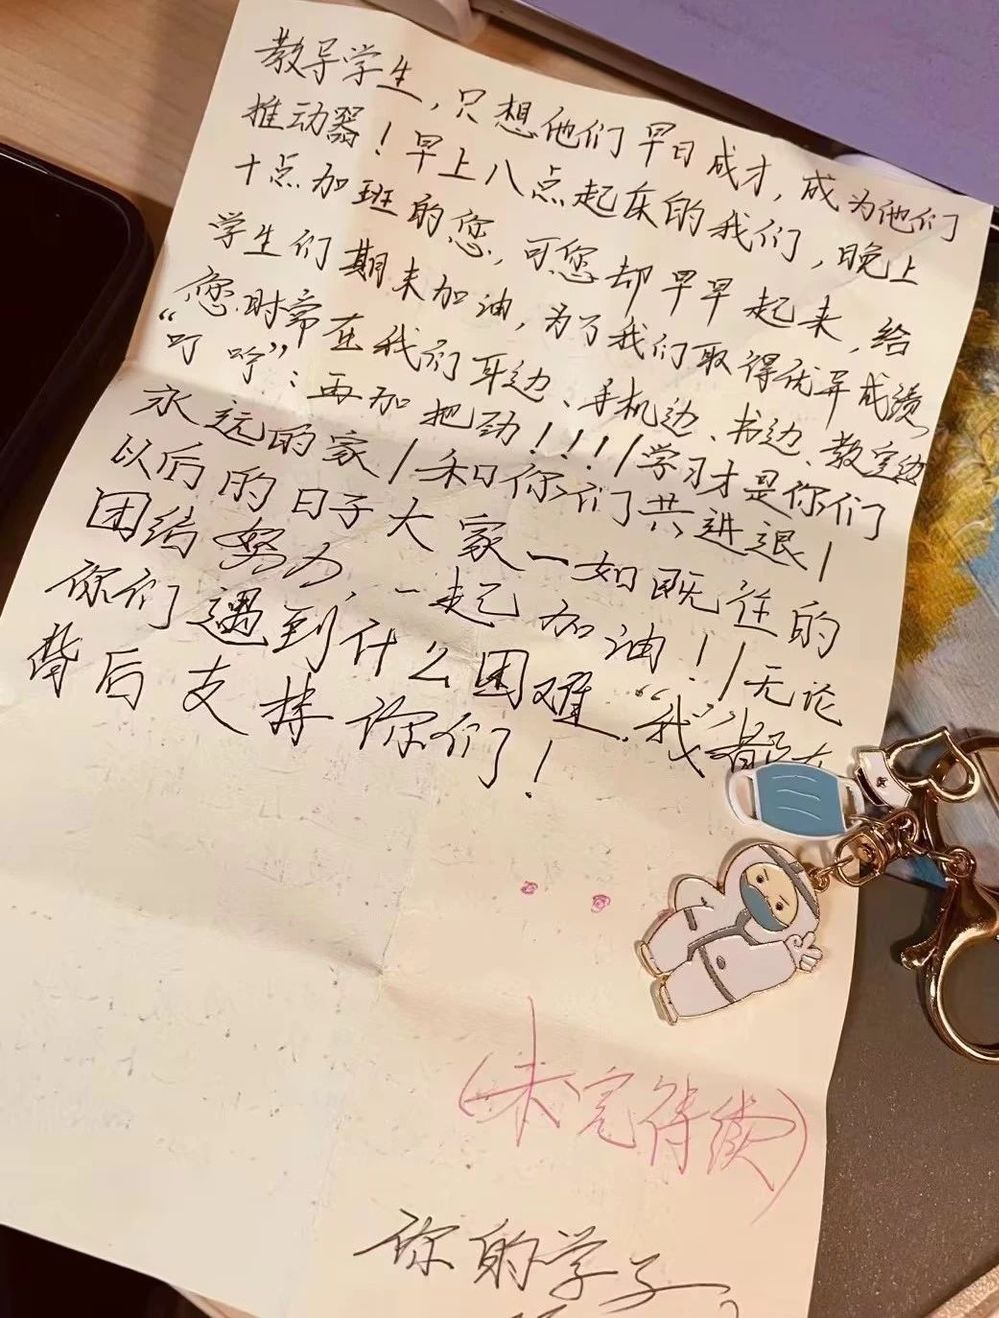 教导学生，只想他们早日成才，成为他们
推动器！早上八点起床的我们，晚上
十点加班的您，可您却早早起来，给
学生们期末加油，为了我们取得优异成绩，
您时常在我们耳边、手机边、书边、教室边
“叮咛”：再加把劲！！！！/学习才是你们
永远的家/和你们共进退/
以后的日子大家一如既往的
团结努力，一起加油！！/无论
你们遇到什么困难“我”都在
背后支持你们！
（未完待续）
你的学子